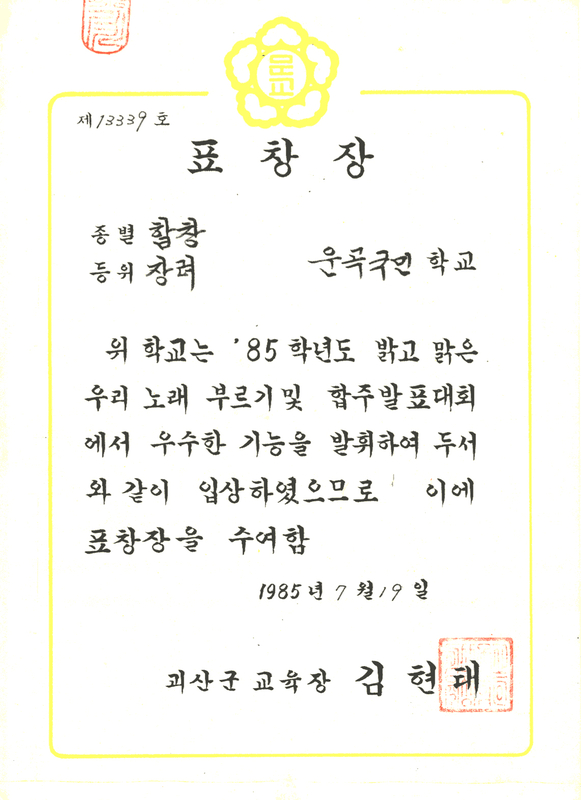 문교
제 13339 호
표 창 장
종별 합창
등위 장려
운곡국민 학교
위 학교는 '85 학년도 밝고 맑은
우리 노래 부르기및 합주발표대회
에서 우수한 기능을 발휘하여 두서
와 같이 입상하였으므로 이에
표창장을 수여함
1985 년 7 월 19 일
괴산군 교육장 김 현 태